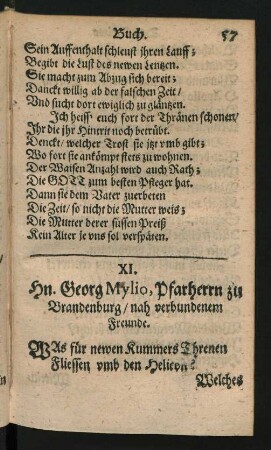 Buch. 57
Sein Auffenthalt schleust jhren Lauff;
Begibt die Lust des newen Lentzen.
Sie macht zum Abzug sich bereit;
Danckt willig ab der falschen Zeit/
Vnd sucht dort ewiglich zu gläntzen.
Jch heiss' euch fort der Thränen schonen/
Jhr die jhr Hinerit noch betrübt.
Denckt/ welcher Trost sie itzt vmb gibt;
Wo fort sie ankömpt stets zu wohnen.
Der Waisen Anzahl wird auch Rath;
Die GOTT zum besten Pfleger hat.
Dann sie dem Vater zuerbeten
Die Zeit/ so nicht die Mutter weis;
Die Mutter derer süssen Preiß
Kein Alter je vns sol verspäten.
XI.
Hn. Georg Mylio, Pfarherrn zu
Brandenburg/ nah verbundenem
Freunde.
WAs für newen Kummers Threnen
Fliessen vmb den Helicon?
Welches